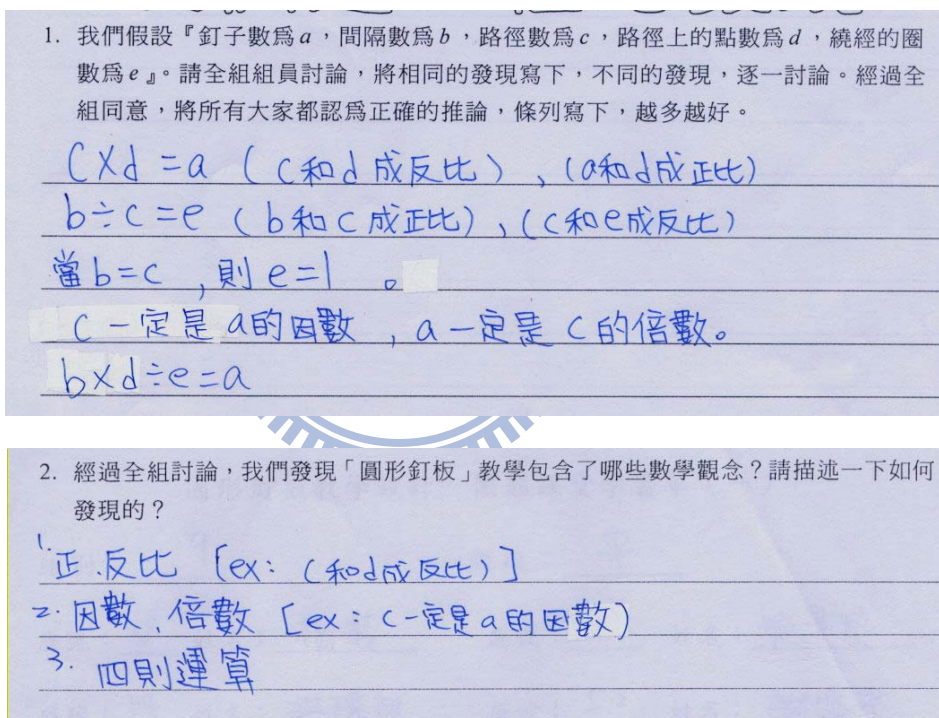 1. 我們假設『釘子數爲a，間隔數爲b，路徑數爲c，路徑上的點數爲d，繞經的圈
數爲e』。請全組組員討論，將相同的發現寫下，不同的發現，逐一討論。經過全
組同意，將所有大家都認爲正確的推論，條列寫下，越多越好。
c×d=a (c和d成反比)，(a和d成正比)
b÷c=e (b和c成正比)，(c和e成反比)
當b=c，則e=1。
c一定是a的因數，a一定是c的倍數。
b×d÷e=a
2. 經過全組討論，我們發現「圓形釘板」教學包含了哪些數學觀念？請描述一下如何
發現的？
1. 正.反比 [ex: c和d成反比)]
2. 因數、倍數 [ex：c一定是a的因數)
3. 四則運算